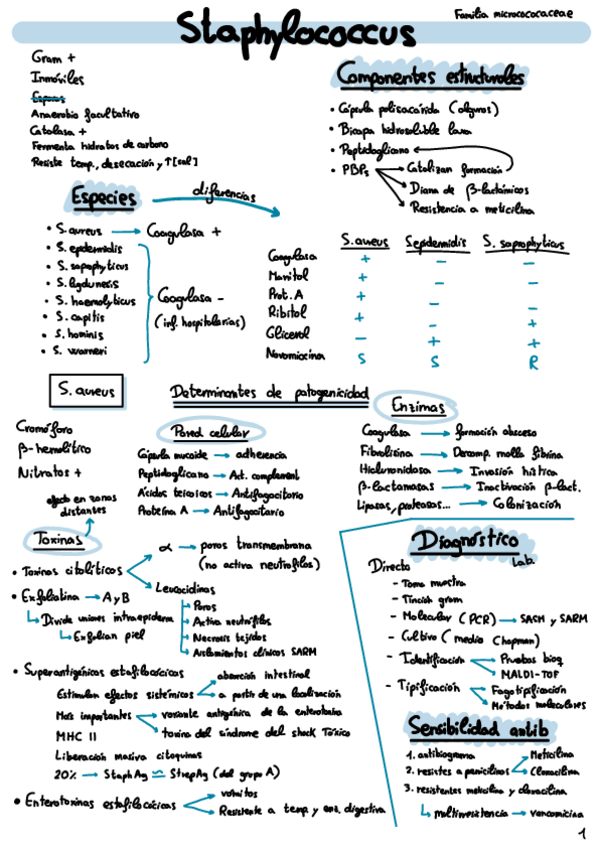 Staphylococcus
Familia micrococcaceae
Gram +
Inmóviles
Esporas
Anaerobio facultativo
Catalasa +
Fermenta hidratos de carbono
Resiste temp, desecación y ↑[sal]
Componentes estructurales
• Cápsula polisacárida (algunos)
• Bicapa hidrosoluble laxa
• Peptidoglicano
• PBPs → Catalizan formación
→ Diana de β-lactámicos
→ Resistencia a meticilina
Especies
diferencias
• S. aureus → Coagulasa +
• S. epidermidis
• S. saprophyticus
• S. lugdunesis
• S. haemolyticus
• S. capitis
• S. hominis
• S. warneri
Coagulasa -
(inf. hospitalarias)
S. aureus S. epidermidis S. saprophyticus
Coagulasa + - -
Manitol + -
Prot. A + - -
Ribitol + - +
Glicerol - + +
Novomiocina S S R
S. aureus
Determinantes de patogenicidad
Cromóforo
β-hemolítico
Nitratos +
Pared celular
Cápsula mucoide → adherencia
Peptidoglicano → Act. complement
Ácidos teicoicos → Antifagocitario
Proteína A → Antifagocitario
Enzimas
Coagulasa → formación absceso
Fibrolisina → Decomp. malla fibrina
Hialuronidasa → Invasión hística
β-lactamasas → Inactivación β-lact.
Lipasas, proteasas... → Colonización
efecto en zonas
distantes
Toxinas
• Toxinas citolíticas → α → poros transmembrana
(no activa neutrófilos)
→ Leucocidinas
Poros
Activa neutrófilos
Necrosis tejidos
Aislamientos clínicos SARM
• Exfoliatina → A y B
↳ Divide uniones intraepiderm
↳ Exfolian piel
• Superantigénicas estafilocócicas
Estimulan efectos sistémicos → absorción intestinal
→ a partir de una localización
Más importantes → variante antigénica de la enterotoxina
→ toxina del síndrome del shock Tóxico
MHC II
Liberación masiva citoquinas
20% → StaphAg ≃ StrepAg (del grupo A)
• Enterotoxinas estafilocócicas → vómitos
→ Resistente a temp y enz. digestiva
Diagnóstico
Lab.
Directo
- Toma muestra
- Tinción gram
- Molecular (PCR) → SASM y SARM
- Cultivo (medio Chapman)
- Identificación → Pruebas bioq
→ MALDI-TOF
- Tipificación → Fagotipificación
→ Métodos moleculares
Sensibilidad antib
1. antibiograma
2. resistes a penicilinas → Meticilina
→ Cloxacilina
3. resistentes meticilina y cloxacilina
↳ multirresistencia → vancomicina
1